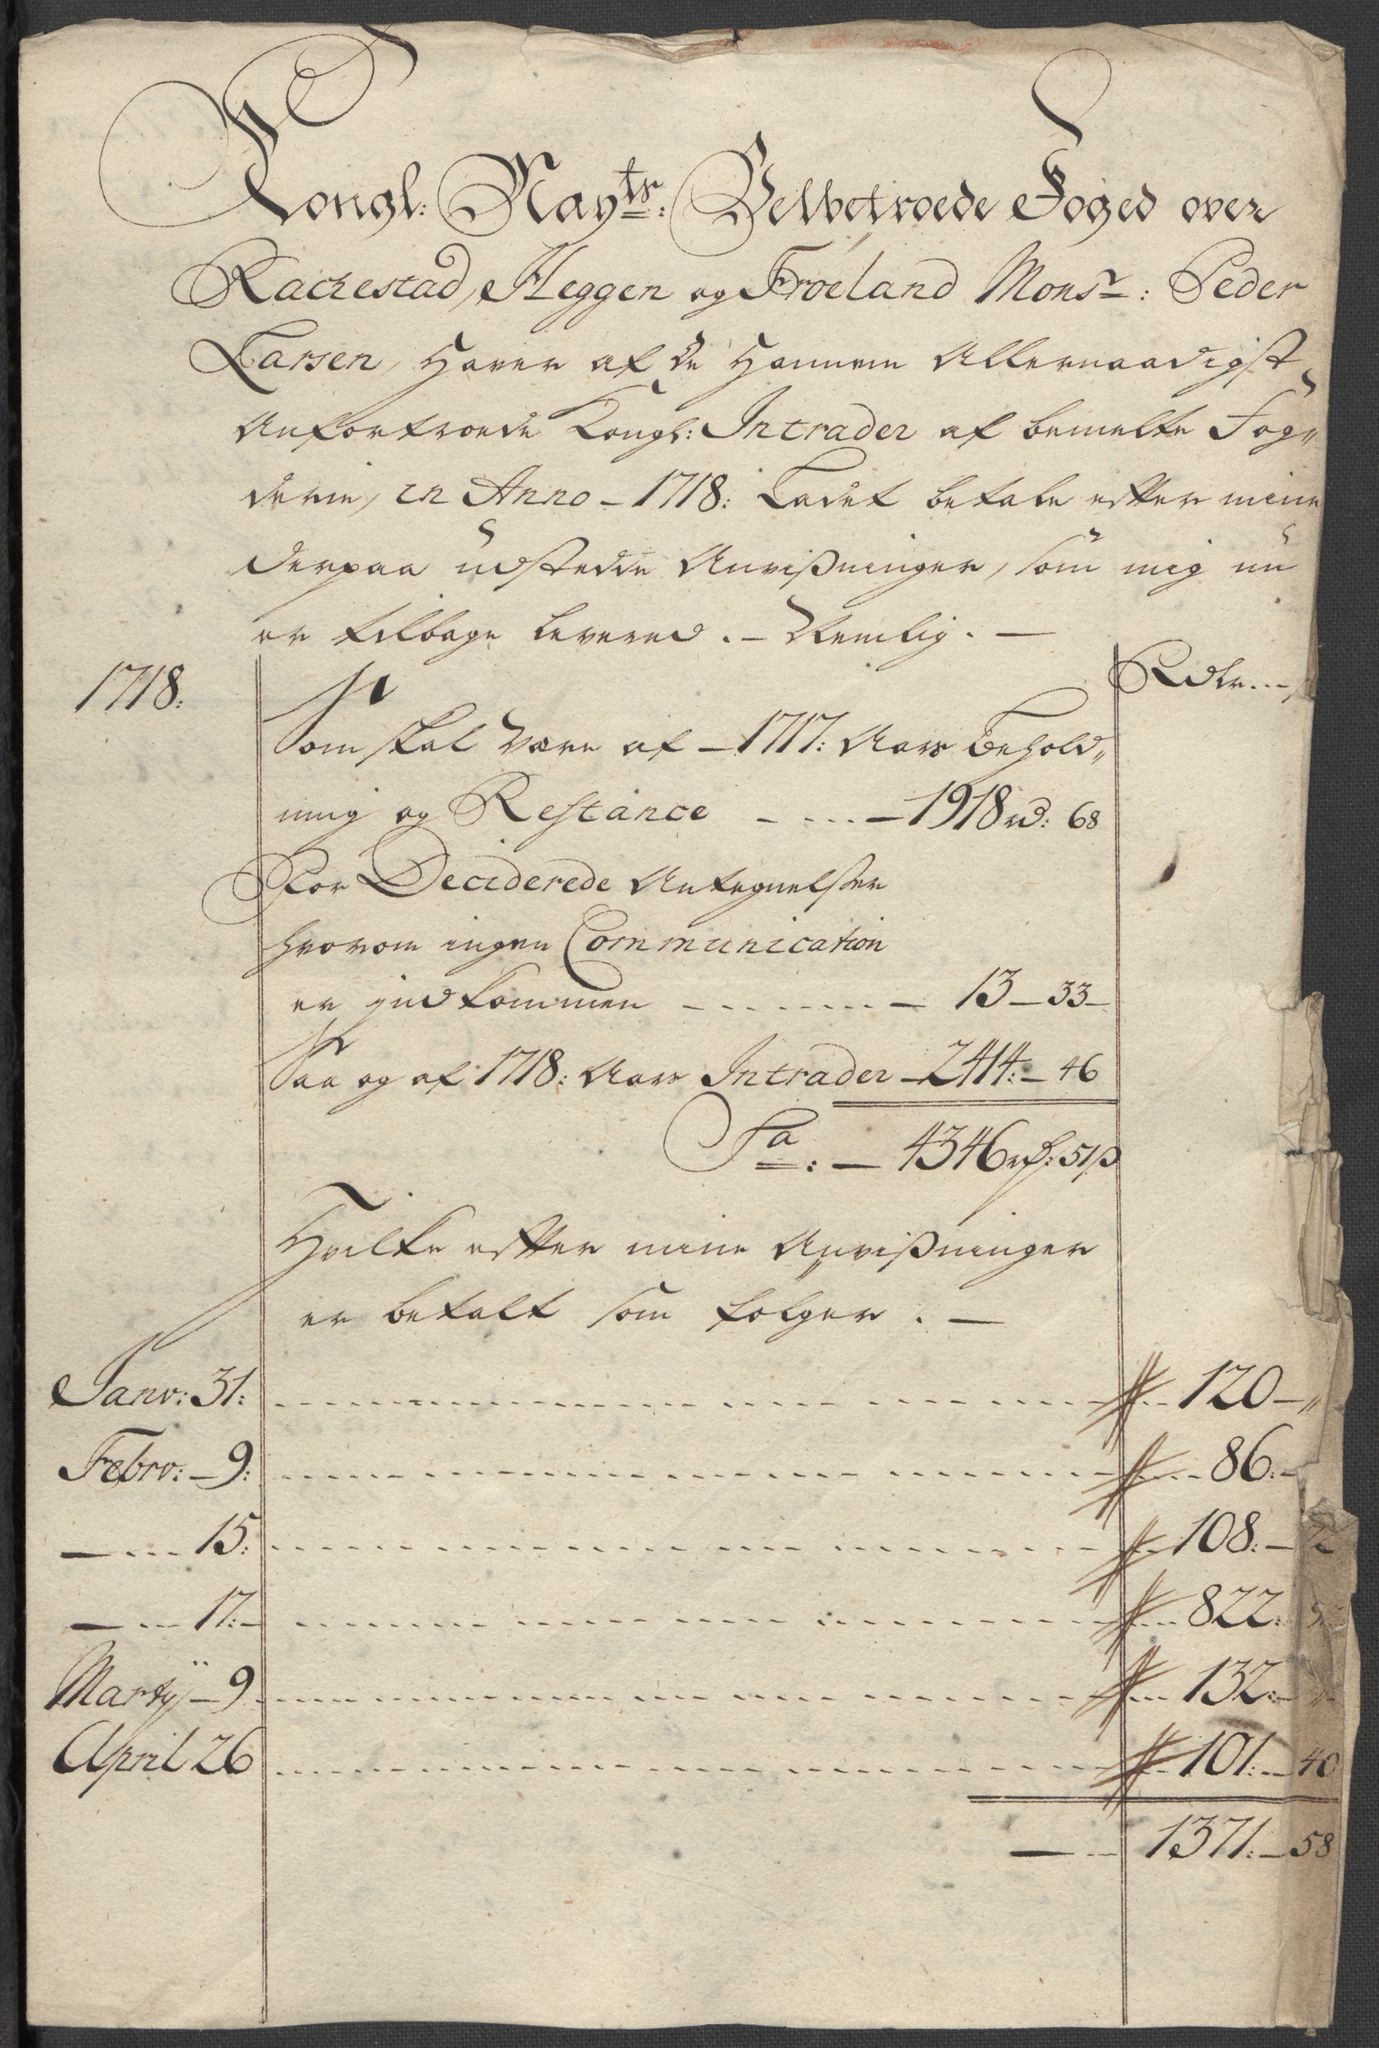 Kongl: Mayts: Velbetroede Foged over
Rachestad, Heggen og Frøeland Monsr: Peder
Larsen, Haver af de Hannem Allernaadigst
Anfortroede Kongl: Intrader af bemelte Fog„
derie, in Anno – 1718: Ladet betale efter mine
derpaa udstedde Anvißninger, som mig nu
er tilbage levered. – Nemlig. –
1718: Rdlr
Som skal være af – 1717: Aars Behold„
ning og Restance – 1918 rd: 68
For Deciderede Antegnelßer
hvorom ingen Communication
er jndkommen – 13 – 33 –
Saa og af 1718: Aars Intrader – 2414: – 46
Sa: – 4346 rd: 51 ß
Hvilke efter mine Anvißninger
er betalt som følger. –
Janv: 31: 120 – „
Febrv: – 9: 86: –
– 15: 108: – 72
– 17: – 822:
Martij – 9 132: –
April 26 101: – 40
– 1371: – 58